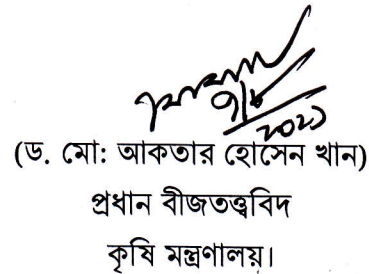 ২০২১
(ড. মো: আকতার হোসেন খান)
প্রধান বীজতত্ত্ববিদ
কৃষি মন্ত্রণালয়।